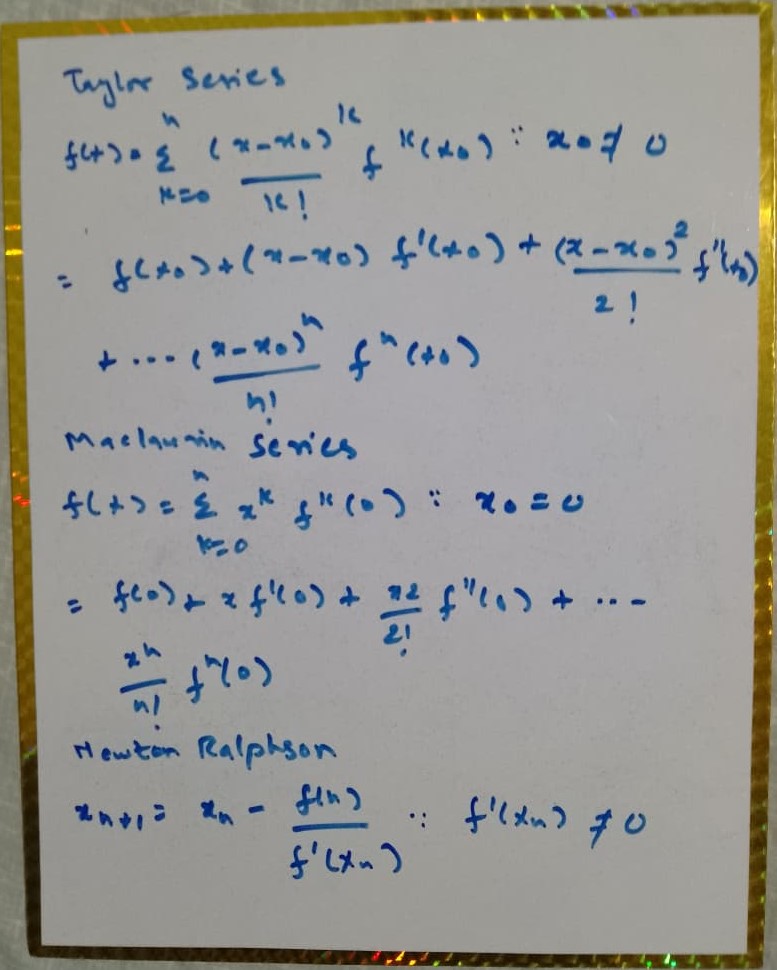 Taylor Series
f(x) = Σ_{k=0}^{n} (x-x₀)^k / k! f^k(x₀) ∵ x₀ ≠ 0
= f(x₀) + (x-x₀) f'(x₀) + (x-x₀)² / 2! f''(x₀)
+ ... (x-x₀)^n / n! f^n(x₀)
Maclaurin Series
f(x) = Σ_{k=0}^{n} x^k f^k(0) ∵ x₀ = 0
= f(0) + x f'(0) + x2 / 2! f''(0) + ...
x^n / n! f^n(0)
Newton Ralphson
x_{n+1} = x_n - f(n) / f'(x_n) ∵ f'(x_n) ≠ 0